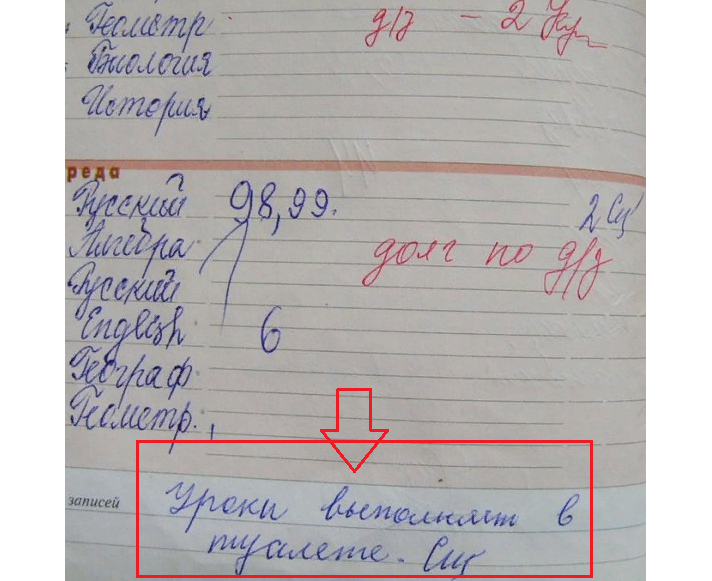 Геометр
д/з - 2
Биология
История
реда
Русский 98,99. 2 Сц
Алгебра
долг по д/з
Русский
English 6
Географ
Геометр.
записей
Уроки выполняет в
туалете. Сц